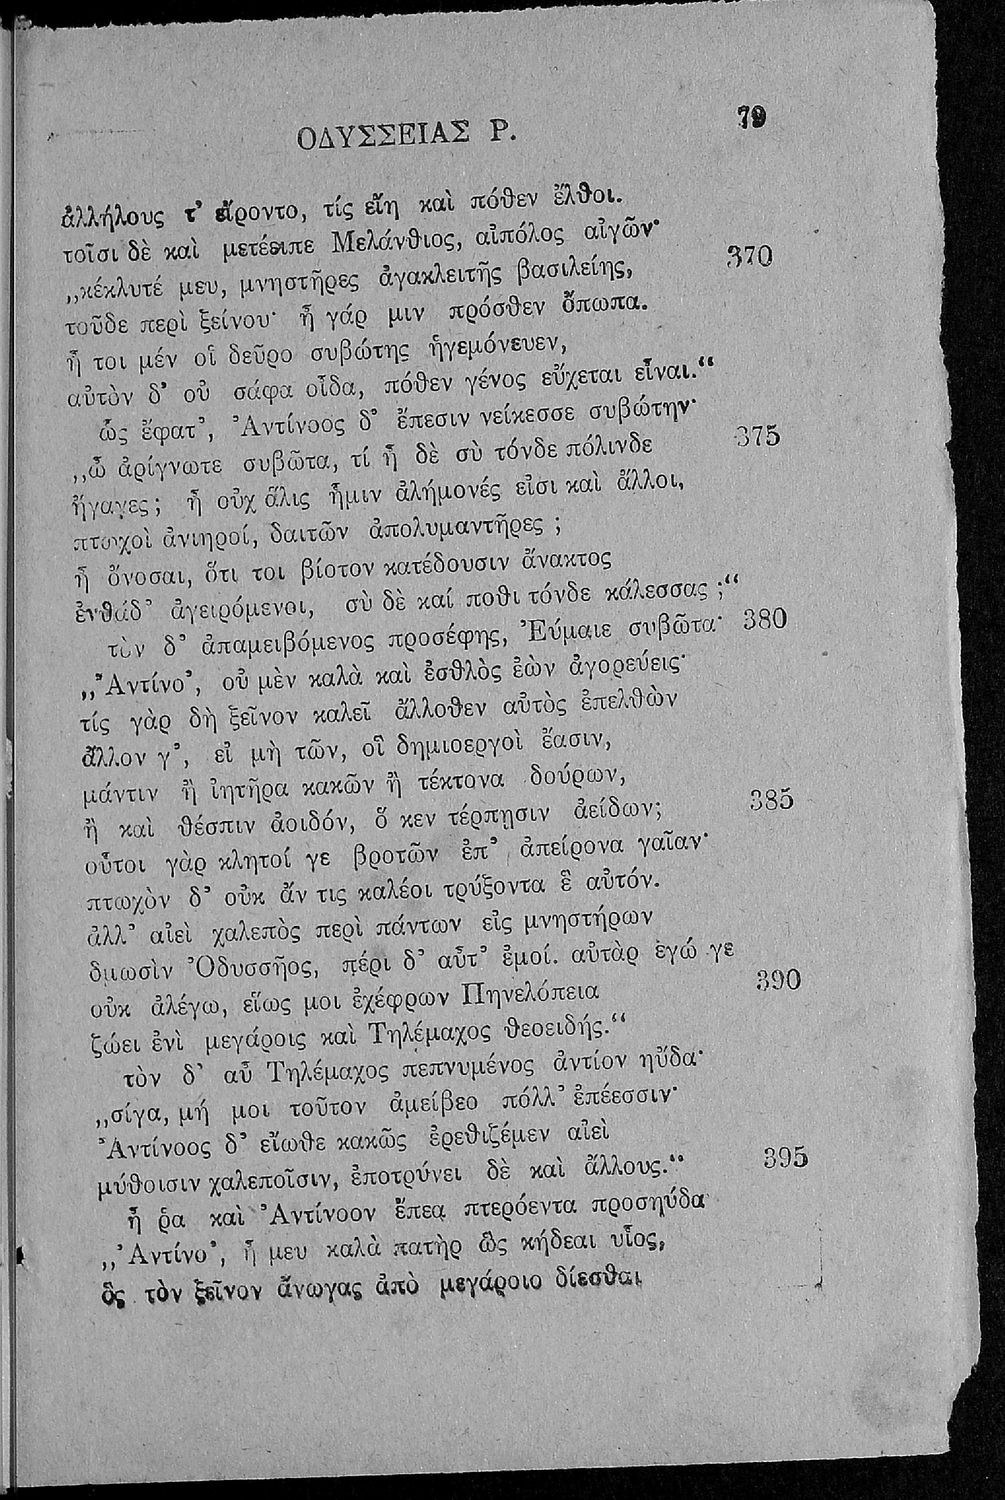 ΟΔΥΣΣΕΙΑΣ Ρ. 79
ἀλλήλους τ᾽ εἴροντο, τίς εἴη καὶ πόθεν ἔλθοι.
τοῖσι δὲ καὶ μετέειπε Μελάνθιος, αἰπόλος αἰγῶν·
„κέκλυτέ μευ, μνηστῆρες ἀγακλειτῆς βασιλείης, 370
τοῦδε περὶ ξείνου· ἦ γάρ μιν πρόσθεν ὄπωπα.
ἦ τοι μέν οἱ δεῦρο συβώτης ἡγεμόνευεν,
αὐτὸν δ᾽ οὐ σάφα οἶδα, πόθεν γένος εὔχεται εἶναι.“
ὣς ἔφατ᾽, Ἀντίνοος δ᾽ ἔπεσιν νείκεσσε συβώτην·
„ὦ ἀρίγνωτε συβῶτα, τί ἦ δὲ σὺ τόνδε πόλινδε 375
ἤγαγες; ἦ οὐχ ἅλις ἦμιν ἀλήμονές εἰσι καὶ ἄλλοι,
πτωχοὶ ἀνιηροί, δαιτῶν ἀπολυμαντῆρες ;
ἦ ὄνοσαι, ὅτι τοι βίοτον κατέδουσιν ἄνακτος
ἐνθάδ᾽ ἀγειρόμενοι, σὺ δὲ καί ποθι τόνδε κάλεσσας ;“
τὸν δ᾽ ἀπαμειβόμενος προσέφης, Ἐύμαιε συβῶτα· 380
„Ἀντίνο᾽, οὐ μὲν καλὰ καὶ ἐσθλὸς ἐὼν ἀγορεύεις·
τίς γὰρ δὴ ξεῖνον καλεῖ ἄλλοθεν αὐτὸς ἐπελθὼν
ἄλλον γ᾽, εἰ μὴ τῶν, οἳ δημιοεργοὶ ἔασιν,
μάντιν ἢ ἰητῆρα κακῶν ἢ τέκτονα δούρων,
ἢ καὶ θέσπιν ἀοιδόν, ὅ κεν τέρπῃσιν ἀείδων; 385
οὗτοι γὰρ κλητοί γε βροτῶν ἐπ᾽ ἀπείρονα γαῖαν·
πτωχὸν δ᾽ οὐκ ἄν τις καλέοι τρύξοντα ἓ αὐτόν.
ἀλλ᾽ αἰεὶ χαλεπὸς περὶ πάντων εἰς μνηστήρων
δμωσὶν Ὀδυσσῆος, πέρι δ᾽ αὖτ᾽ ἐμοί. αὐτὰρ ἐγώ γε
οὐκ ἀλέγω, εἵως μοι ἐχέφρων Πηνελόπεια 390
ζώει ἐνὶ μεγάροις καὶ Τηλέμαχος θεοειδής.“
τὸν δ᾽ αὖ Τηλέμαχος πεπνυμένος ἀντίον ηὔδα·
„σίγα, μή μοι τοῦτον ἀμείβεο πόλλ᾽ ἐπέεσσιν·
Ἀντίνοος δ᾽ εἴωθε κακῶς ἐρεθιζέμεν αἰεὶ
μύθοισιν χαλεποῖσιν, ἐποτρύνει δὲ καὶ ἄλλους.“ 395
ἦ ῥα καὶ Ἀντίνοον ἔπεα πτερόεντα προσηύδα·
„Ἀντίνο᾽, ἦ μευ καλὰ πατὴρ ὣς κήδεαι υἷος,
ὃς τὸν ξεῖνον ἄνωγας ἀπὸ μεγάροιο δίεσθαι